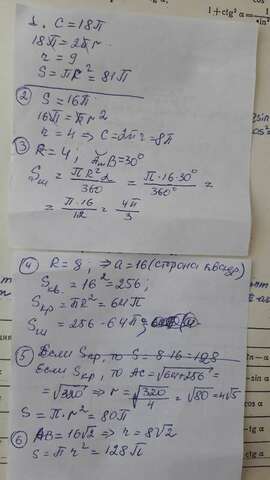 1 + ctg² α = 1
1. C = 18π
18π = 2πr
r = 9
S = πR² = 81π
② S = 16π
16π = πr²
r = 4 ⇒ C = 2πr = 8π
③ R = 4; B = 30°
Sш = πR²α / 360 = π·16·30° / 360° =
= π·16 / 12 = 4π / 3
④ R = 8; ⇒ a = 16 (сторона квадр)
Sкв = 16² = 256;
Sкр = πR² = 64π
Sш = 256 - 64π
⑤ Если Sкр, то S = 8·16 = 128
Если Sкр, то AC = √64+256 =
= √320 ⇒ r = √320/4 = √80 = 4√5
S = π·r² = 80π
⑥ AB = 16√2 ⇒ r = 8√2
S = πr² = 128π